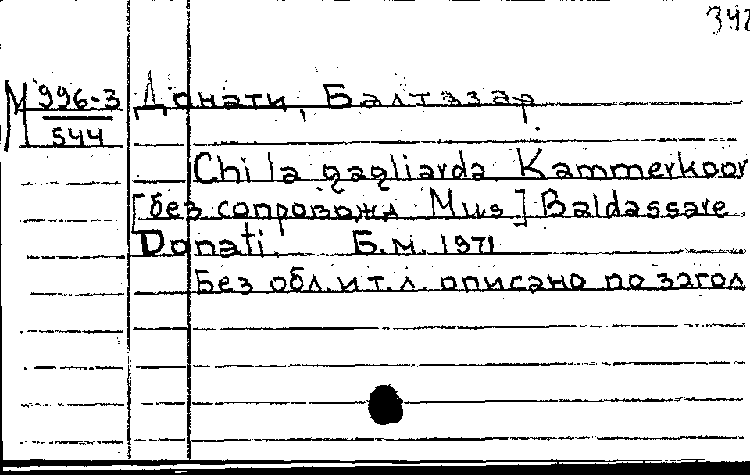 342
М 996-3
544
Донати, Балтазар.
Chi la gagliarda. Kammerkoor
[без сопровожд. Mus.] Baldassare
Donati. Б.м. 1971
Без обл. и т.л. описано по загол